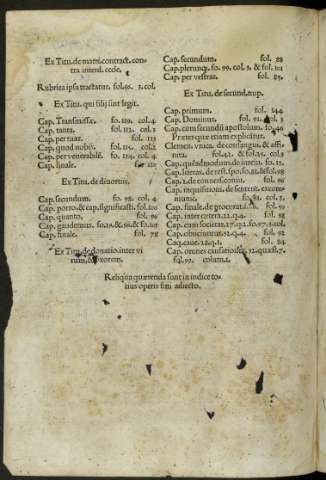 Ex Titu. de matri. contract. con
tra interd. eccle.
Rubrica ipsa tractatur. fol. 96. 2. col.
Ex Titu. qui filij sunt legit.
Cap. fo. 119. col. 4
Cap. tanta. fol. 112. col. 2
Cap. per tuas. fol. 112
Cap. quod nobis. fol. 115. col. 2
Cap. per venerabilē. fo. 114. col. 4
Cap. finale. fo.
Ex Titu. de diuortiis.
Cap. secundum. fo. 92. col. 4
Cap. porro, & cap. significasti. fol. 100
Cap. quanto. fol. 96
Cap. gaudemus. fo. & 56. & fo.
Cap. finale. fol. 78
Ex Titu. de donatio. inter vi
rum, & vxorem.
Cap. secundum. fol. 88
Cap. plerunq;. fo. 99. col. 2. & fol. 101
Cap. per vestras. fol. 85.
Ex Titu. de secund. nup.
Cap. primum. fol. 144
Cap. Dominus. fol. 91. col. 3
Cap. cum secundū apostolum. fo. 46
Preter quæ etiam explicātur.
Clemen. vnica. de consangui. & affi-
nita. fol. 42. & fol. 45. col. 3
Cap. quēadmodum de iureiu. fo. 21.
Cap. literas. de rest. spo. fo. 81. & fol. 98
Cap. 2. de eo
Cap. inquisitioni. de senten. excom-
munica. fo. 81. col. 2.
Cap. finale. de procurato. fol. 59
Cap. inter cætera. 22. q. 4. fol. 58
Cap. cum societas. 27. q. 2. fo. 97. 2. col.
Cap. 32. q. 4. fol. 92
Cap. 32. q. 1. fol. 84
Cap. omnes causationes. 32. quæst. 7.
fol. 92. colum. 2.
Reliqua quærenda sunt in indice to-
tius operis fini adiecto.